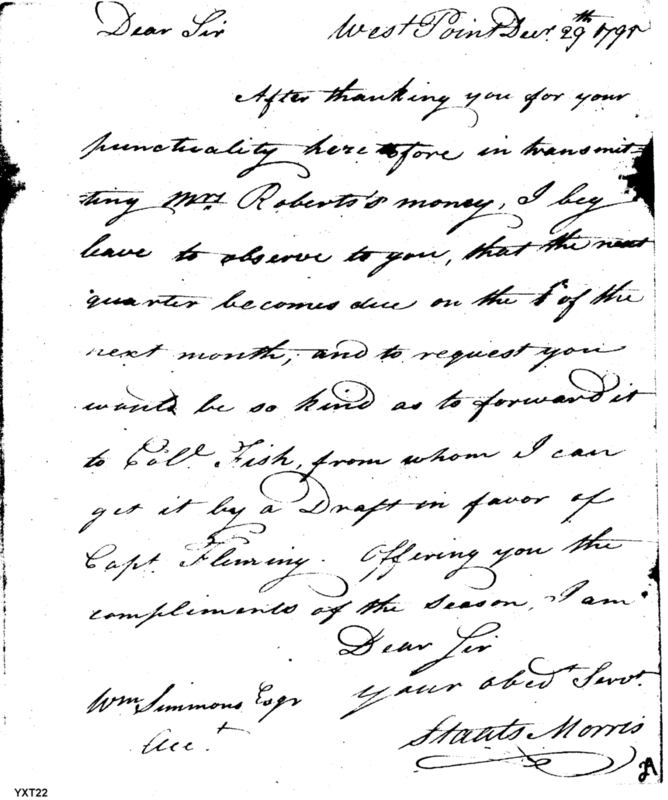 Dear Sir West Point Decr. 29th 1797
After thanking you for your
punctuality heretofore in transmit-
ting Mrs Roberts's money, I beg
leave to observe to you, that the next
quarter becomes due on the 1st of the
next month, and to request you
would be so kind as to forward it
to Coll. Fish, from whom I can
get it by a Draft in favor of
Capt. Fleming. Offering you the
compliments of the season, I am
Dear Sir
your obedt Servt.
Wm Simmons Esqr
Acct
Staats Morris
YXT22